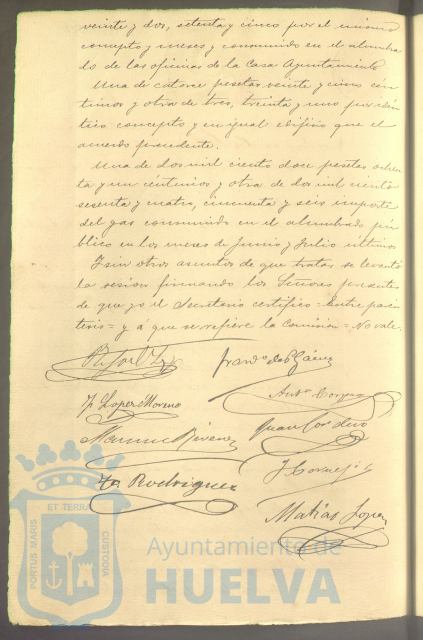 veinte y dos, setenta y cinco por el mismo
concepto y meses y consumido en el alumbra
do de las oficinas de la Casa Ayuntamiento
Una de catorce pesetas veinte y cinco cén
timos y otra de tres, treinta y uno por idén
tico concepto y en igual edificio que el
acuerdo precedente.
Una de dos mil ciento doce pesetas ochen
ta y un céntimos y otra de dos mil ciento
sesenta y cuatro, cincuenta y seis importe
del gas consumido en el alumbrado pú
blico en los meses de Junio y Julio últimos
Y sin otros asuntos de que tratar se levantó
la sesión firmando los Señores presentes
de que yo el Secretario certifico = Entre parén
tesis = y á que se refiere la Comisión = No vale.
Rafael
Franco. de P.
J. Lopez Moreno
Anto.
Manuel Rivera
Juan Cordero
Rodriguez
J Cornejo
Matias Lopez
ET TERRAE
PORTUS MARIS
CUSTODIA
Ayuntamiento de
HUELVA